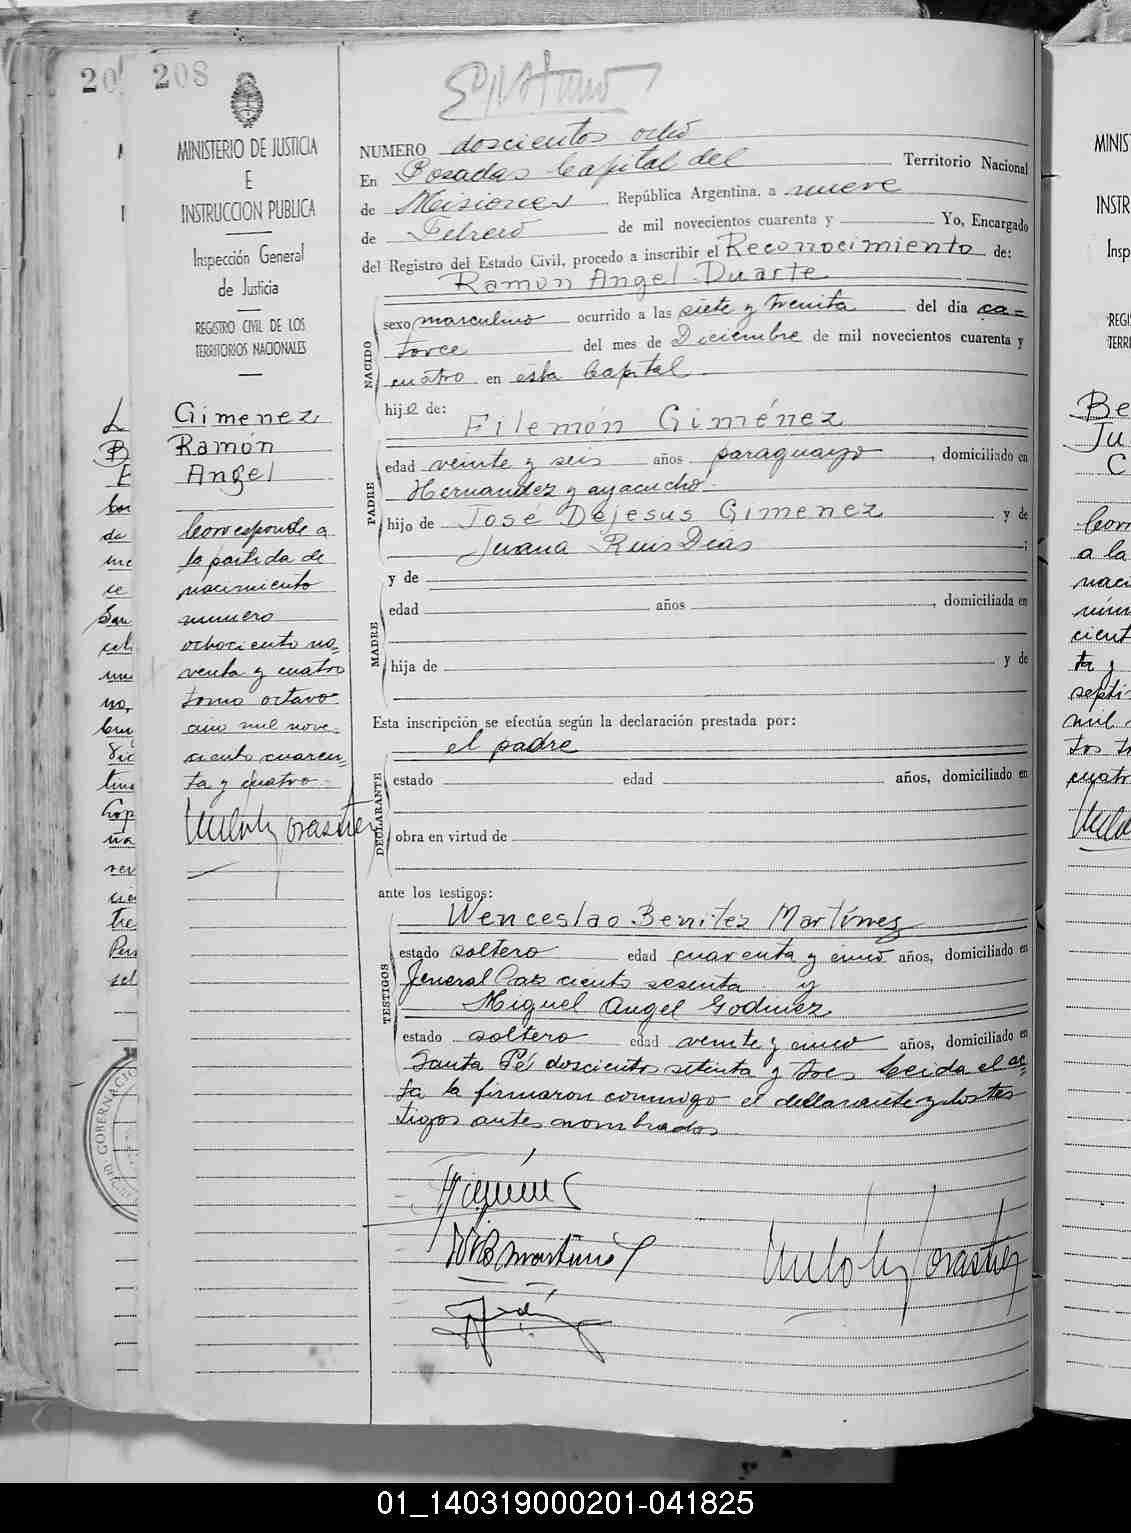 208
MINISTERIO DE JUSTICIA
E
INSTRUCCION PUBLICA
Inspección General
de Justicia
REGISTRO CIVIL DE LOS
TERRITORIOS NACIONALES
Gimenez
Ramón
Angel
Corresponde a
la partida de
nacimiento
numero
ochociento no=
venta y cuatro
tomo octavo
año mil nove-
ciento cuaren-
ta y cuatro
NUMERO doscientos ocho
En Posadas Capital del Territorio Nacional
de Misiones, República Argentina, a nueve
de Febrero de mil novecientos cuarenta y Yo, Encargado
del Registro del Estado Civil, procedo a inscribir el Reconocimiento de:
Ramón Angel Duarte
NACIDO
sexo masculino ocurrido a las siete y treinta del día ca=
torce del mes de Diciembre de mil novecientos cuarenta y
cuatro en esta Capital
hijo de:
Filemón Giménez
PADRE
edad veinte y seis años paraguayo, domiciliado en
Hernandez y ayacucho
hijo de José Dejesus Gimenez y de
Juana Ruis Dias;
y de
MADRE
edad años, domiciliada en
hija de y de
Esta inscripción se efectúa según la declaración prestada por:
el padre
DECLARANTE
estado edad años, domiciliado en
obra en virtud de
ante los testigos:
TESTIGOS
Wenceslao Benitez Martínez
estado soltero edad cuarenta y cinco años, domiciliado en
General Paz ciento sesenta y
Miguel Angel Godinez
estado soltero edad veinte y cinco años, domiciliado en
Santa Fé doscientos setenta y tres Leida el ac-
ta la firmaron conmigo el declarante y los tes
tigos antes nombrados
01_140319000201-041825